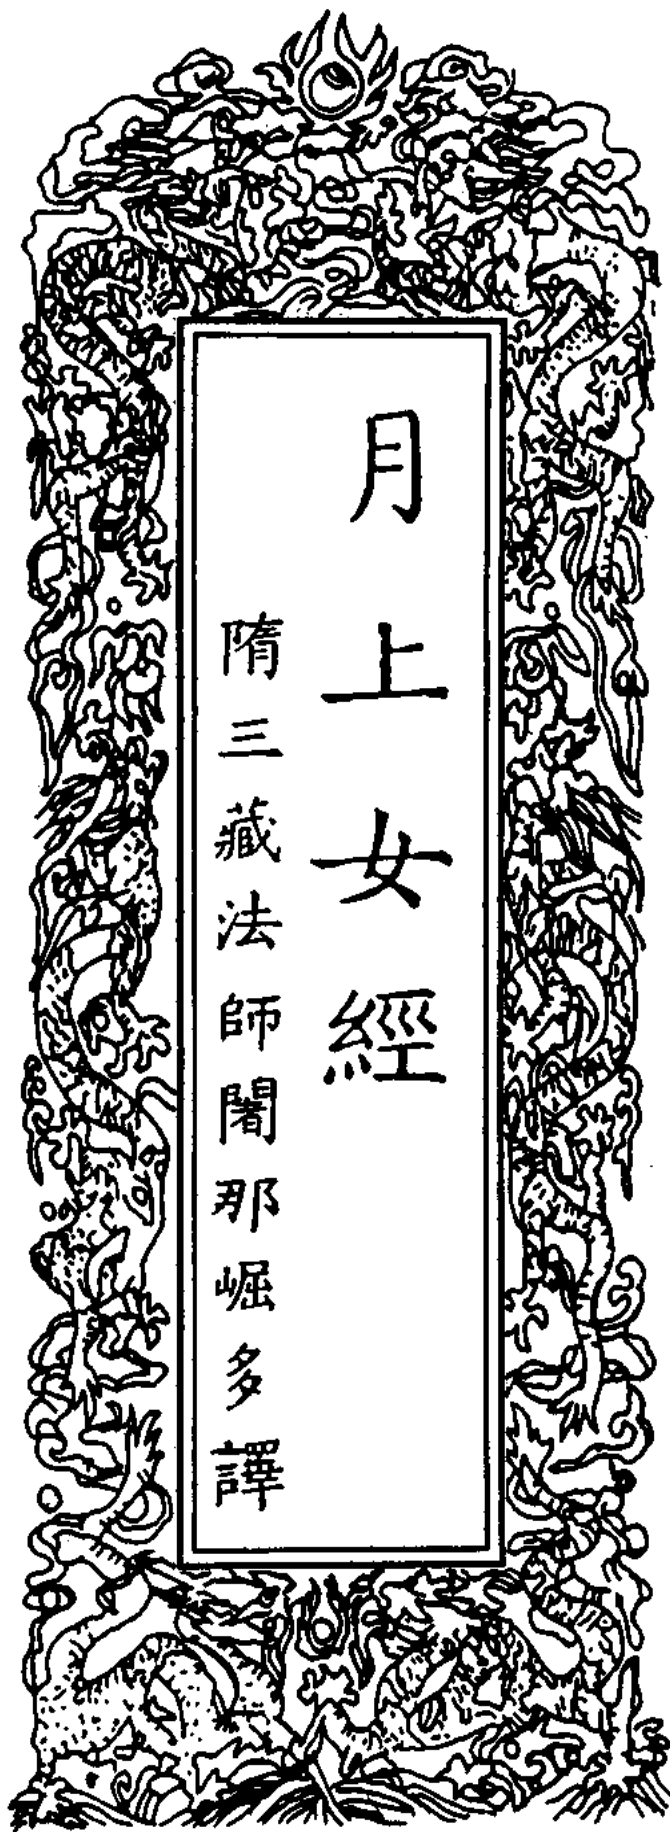 月上女經
隋三藏法師闍那崛多譯